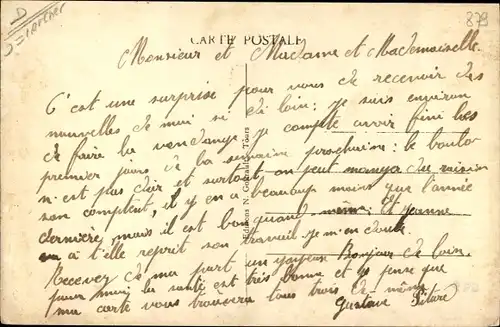 D
à classer
879
CARTE POSTALE
Monsieur et Madame et Mademoiselle
C'est une surprise pour vous de recevoir des
nouvelles de moi si loin: je suis environ
de faire la vendange je compte avoir fini les
premier jours de la semaine prochaine: le boulo
n'est pas dur et surtout on peut manger du raisin
son comptent, il y en a beaucoup moins que l'année
dernière, mais il est bon quand même. Et Jeanne
a t'elle reprit son travail je m'en doute.
Recevez de ma part un joyeux Bonjour de loin.
pour moi la santé est très bonne et je pense que
ma carte vous trouvera tous trois de même
Gustave
Editions N. G. Tours